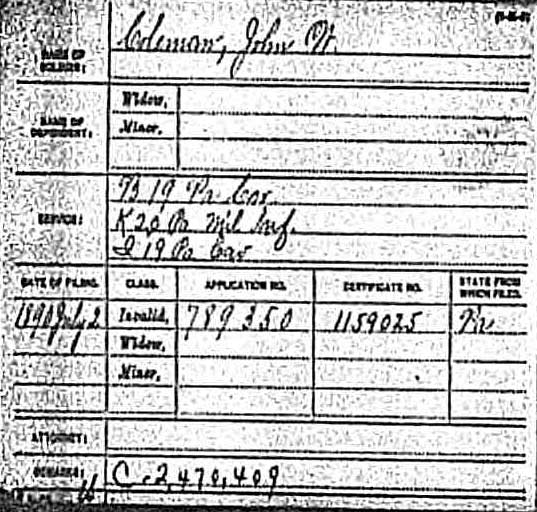 NAME OF SOLDIER: Coleman, John W.
NAME OF DEPENDENT: Widow,
Minor,
SERVICE: B 19 Pa Cav.
K 20 Pa Mil Inf.
I 19 Pa Cav
DATE OF FILING. CLASS. APPLICATION NO. CERTIFICATE NO. STATE FROM WHICH FILED.
1890 July 2 Invalid, 789350 1159025 Pa
Widow,
Minor,
ATTORNEY:
REMARKS: C. 2,470,409